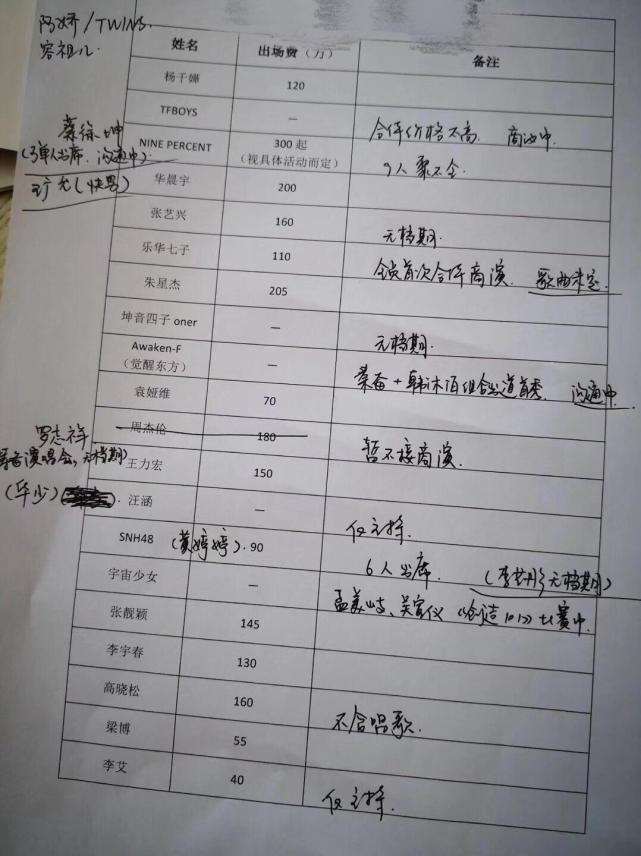 阿娇/TWINS.
容祖儿.
姓名 出场费（万） 备注
杨千嬅 120
TFBOYS — 合体价格不高. 商沟中.
蔡徐坤
(可单人出席. 沟通中).
NINE PERCENT 300 起
（视具体活动而定） 9人聚不全.
(快男)
华晨宇 200
张艺兴 160 无档期.
乐华七子 110 全员首次合体商演. 歌曲未定.
朱星杰 205
坤音四子 oner — 无档期.
Awaken-F
（觉醒东方） — 秦奋+韩沐伯组合出道首秀. 沟通中.
袁娅维 70
周杰伦 180 暂不接商演.
罗志祥
演唱会,无档期)
王力宏 150
(华少)
汪涵 — 仅主持.
SNH48 (黄婷婷). 90 6人出席. (李艺彤无档期)
宇宙少女 — 孟美岐、吴宣仪《创造101》比赛中.
张靓颖 145
李宇春 130
高晓松 160 不含唱歌.
梁博 55
李艾 40 仅主持.